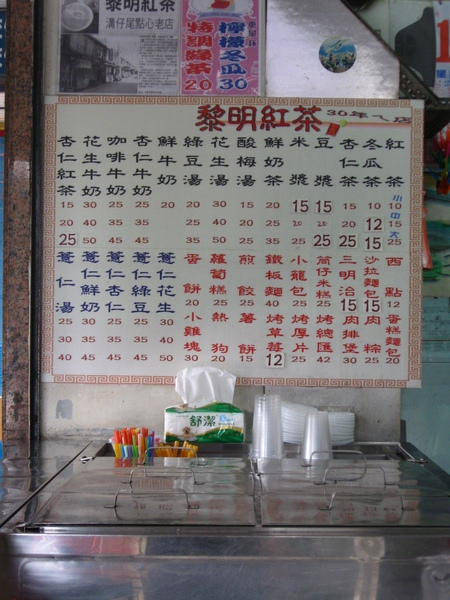 黎明紅茶
溝仔尾點心老店
檸檬冬瓜 30
特調綠茶 20
黎明紅茶
30年ㄟ店
紅茶 小10 中15 大25
冬瓜茶 10 12 15
杏仁茶 15 20 25
豆漿 15 20 25
米漿 15 20
鮮奶茶 20 25 35
酸梅湯 15 20 25
花生湯 30 40 50
綠豆湯 20 25 35
鮮牛奶 20
杏仁牛奶 25 35 45
咖啡牛奶 25 35 45
花生牛奶 30 40 50
杏仁紅茶 15 20 25
西點 12 蛋糕麵包 20
沙拉麵包 15 肉粽 25
三明治 15 肉排堡 30
筒仔米糕 25 烤總匯 42
小龍包 烤厚片 25
鐵板麵 40 烤草莓 12
煎餃 25 薯餅 15
蘿蔔糕 25 熱狗 20
蛋餅 20 小雞塊 30
薏仁花生 30 40 50
薏仁綠豆 25 35 45
薏仁杏仁 25 35 45
薏仁鮮奶 30 40 45
薏仁湯 25 30 40
舒潔